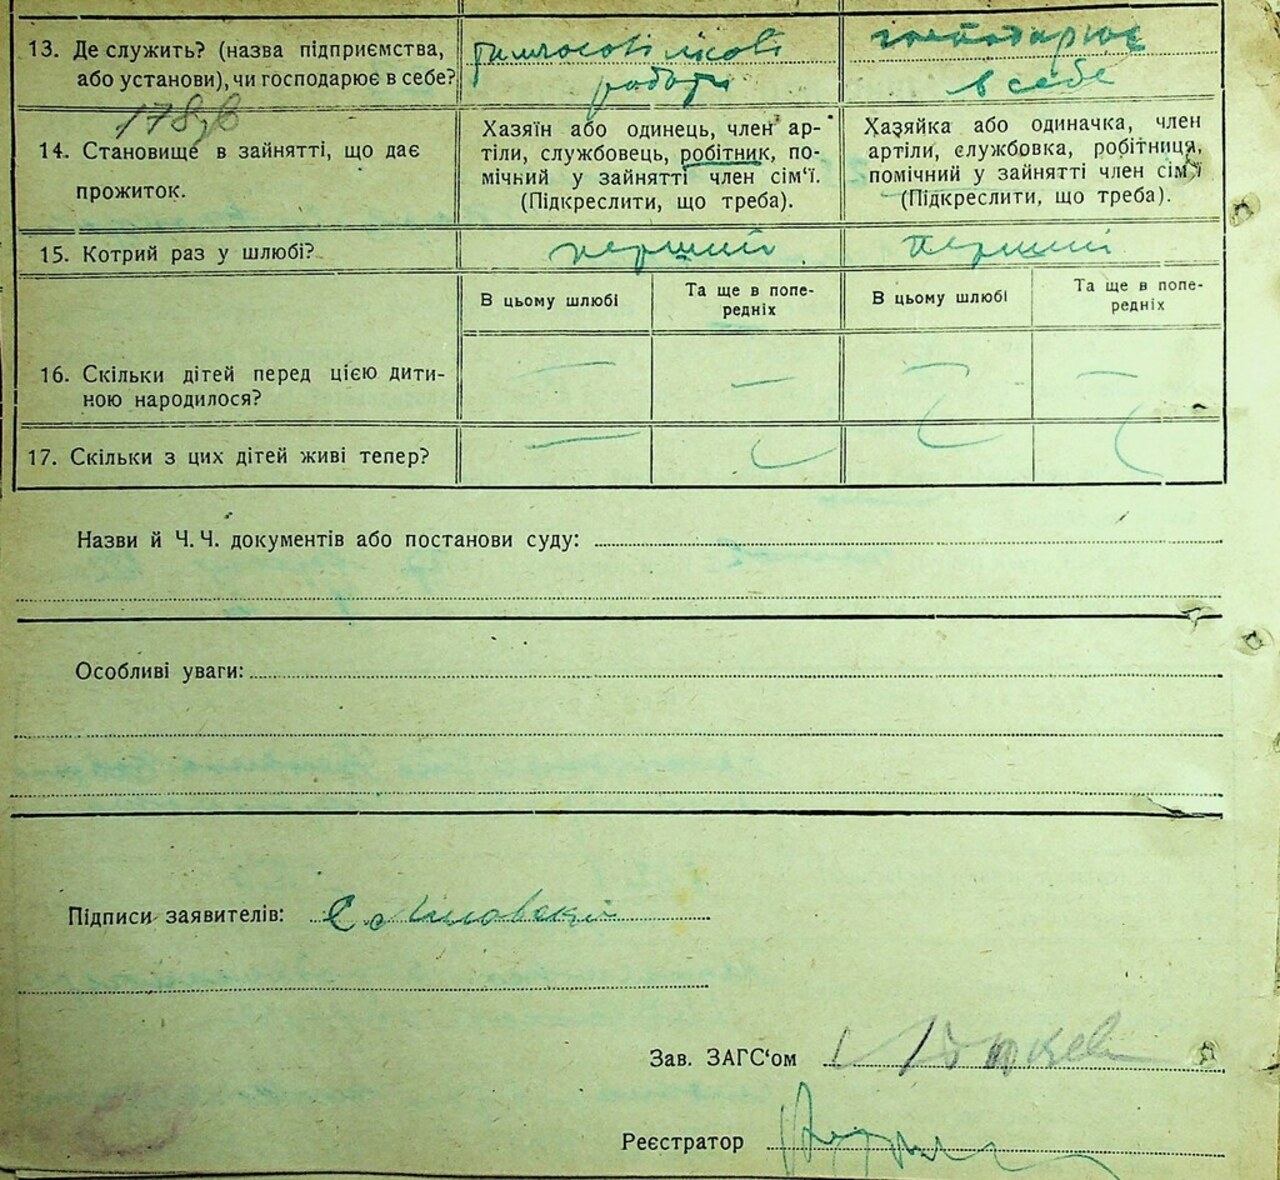 13. Де служить? (назва підприємства, або установи), чи господарює в себе?
тимчасові лісові
роботи
господарює
в себе
14. Становище в зайнятті, що дає прожиток.
Хазяїн або одинець, член ар-
тіли, службовець, робітник, по-
мічний у зайнятті член сім'ї.
(Підкреслити, що треба).
Хазяйка або одиначка, член
артіли, службовка, робітниця,
помічний у зайнятті член сім'ї
(Підкреслити, що треба).
15. Котрий раз у шлюбі?
перший
перший
В цьому шлюбі
Та ще в попе-
редніх
В цьому шлюбі
Та ще в попе-
редніх
16. Скільки дітей перед цією дити-
ною народилося?
17. Скільки з цих дітей живі тепер?
Назви й Ч. Ч. документів або постанови суду:
Особливі уваги:
Підписи заявителів:
Зав. ЗАГС'ом
Реєстратор